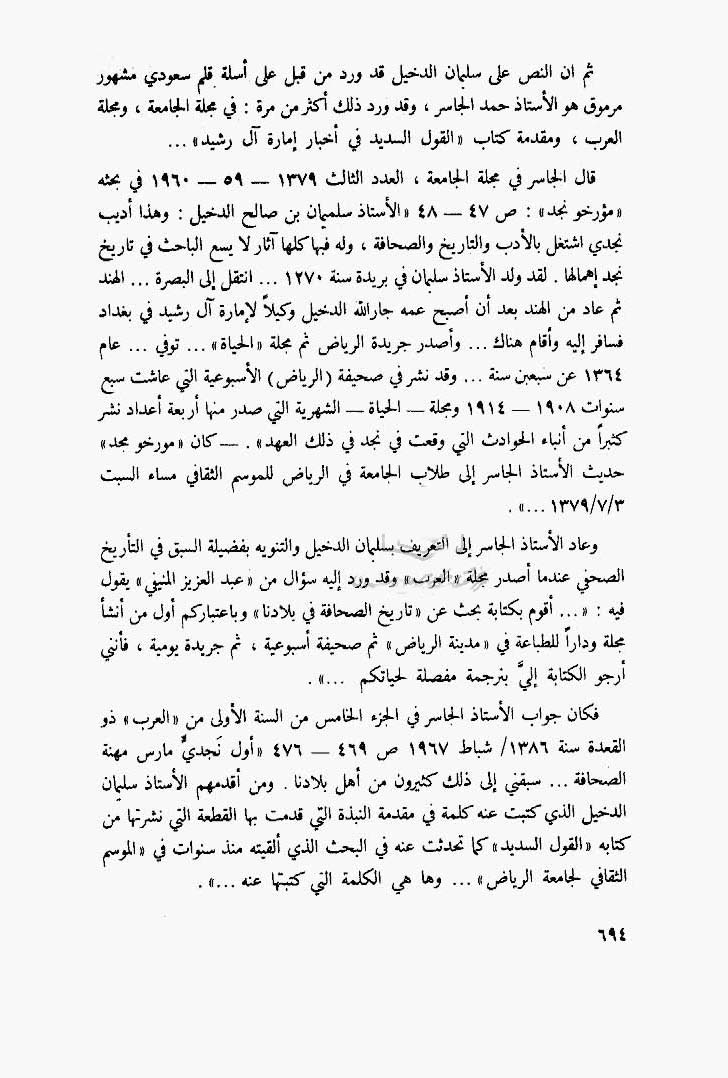 ثم ان النص على سليمان الدخيل قد ورد من قبل على أسلة قلم سعودي مشهور
مرموق هو الأستاذ حمد الجاسر ، وقد ورد ذلك أكثر من مرة : في مجلة الجامعة ، ومجلة
العرب ، ومقدمة كتاب «القول السديد في أخبار إمارة آل رشيد» ...
قال الجاسر في مجلة الجامعة ، العدد الثالث ١٣٧٩ — ٥٩ — ١٩٦٠ في بحثه
«مؤرخو نجد» : ص ٤٧ — ٤٨ «الأستاذ سلميان بن صالح الدخيل : وهذا أديب
نجدي اشتغل بالأدب والتاريخ والصحافة ، وله فيها كلها آثار لا يسع الباحث في تاريخ
نجد إهمالها . لقد ولد الأستاذ سليمان في بريدة سنة ١٢٧٠ ... انتقل إلى البصرة ... الهند
ثم عاد من الهند بعد أن أصبح عمه جارالله الدخيل وكيلاً لإمارة آل رشيد في بغداد
فسافر إليه وأقام هناك ... وأصدر جريدة الرياض ثم مجلة «الحياة» ... توفي ... عام
١٣٦٤ عن سبعين سنة ... وقد نشر في صحيفة (الرياض) الأسبوعية التي عاشت سبع
سنوات ١٩٠٨ — ١٩١٤ ومجلة — الحياة — الشهرية التي صدر منها أربعة أعداد نشر
كثيراً من أنباء الحوادث التي وقعت في نجد في ذلك العهد» . — كان «مورخو مجد»
حديث الأستاذ الجاسر إلى طلاب الجامعة في الرياض للموسم الثقافي مساء السبت
١٣٧٩/٧/٣ ...» .
وعاد الأستاذ الجاسر إلى التعريف بسليمان الدخيل والتنويه بفضيلة السبق في التأريخ
الصحفي عندما أصدر مجلة «العرب» وقد ورد إليه سؤال من «عبد العزيز المنيفي» يقول
فيه : «... أقوم بكتابة بحث عن «تاريخ الصحافة في بلادنا» وباعتباركم أول من أنشأ
مجلة وداراً للطباعة في «مدينة الرياض» ثم صحيفة أسبوعية ، ثم جريدة يومية ، فأنني
أرجو الكتابة إليَّ بترجمة مفصلة لحياتكم ...» .
فكان جواب الأستاذ الجاسر في الجزء الخامس من السنة الأولى من «العرب» ذو
القعدة سنة ١٣٨٦/ شباط ١٩٦٧ ص ٤٦٩ — ٤٧٦ «أول نَجديٍّ مارس مهنة
الصحافة ... سبقني إلى ذلك كثيرون من أهل بلادنا . ومن أقدمهم الأستاذ سليمان
الدخيل الذي كتبت عنه كلمة في مقدمة النبذة التي قدمت بها القطعة التي نشرتها من
كتابه «القول السديد» كما تحدثت عنه في البحث الذي ألقيته منذ سنوات في «الموسم
الثقافي لجامعة الرياض» ... وها هي الكلمة التي كتبتها عنه ...» .
٦٩٤